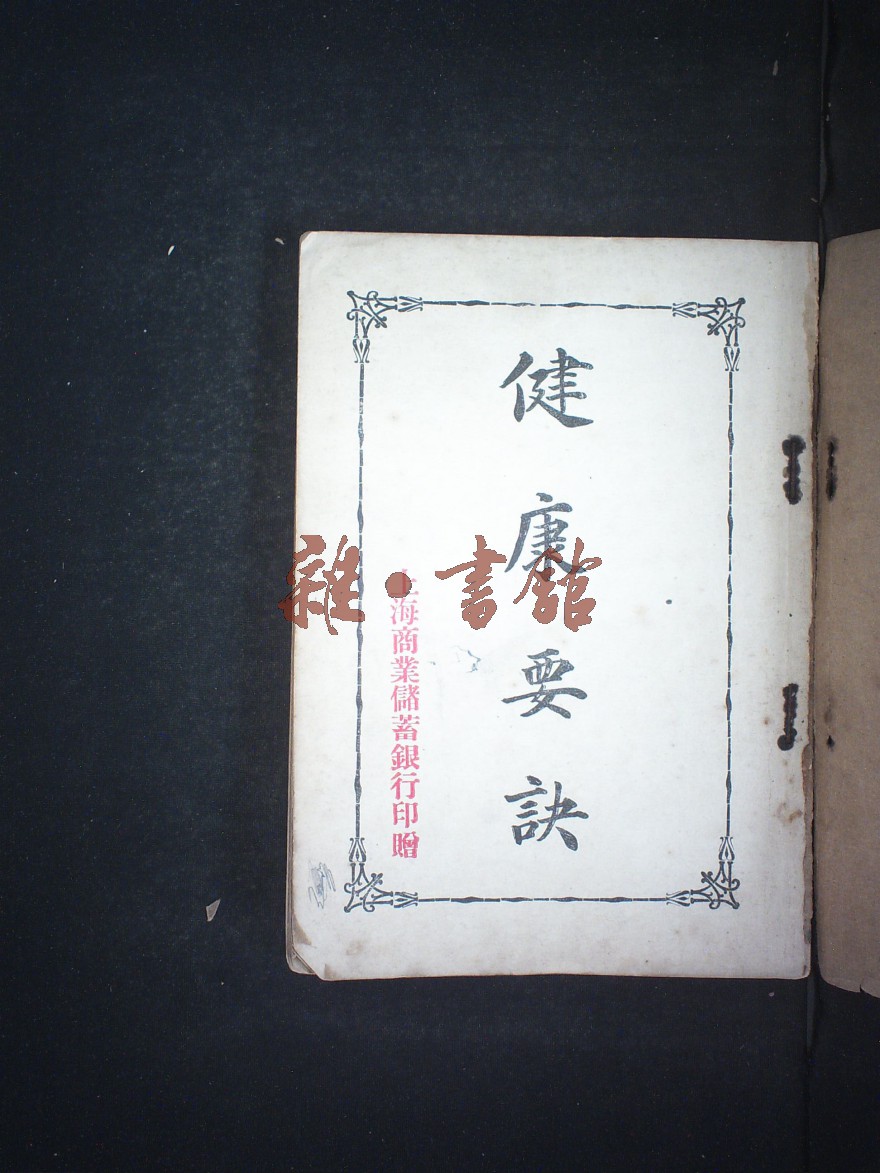 健康要訣
上海商業儲蓄銀行印贈
雜·書館